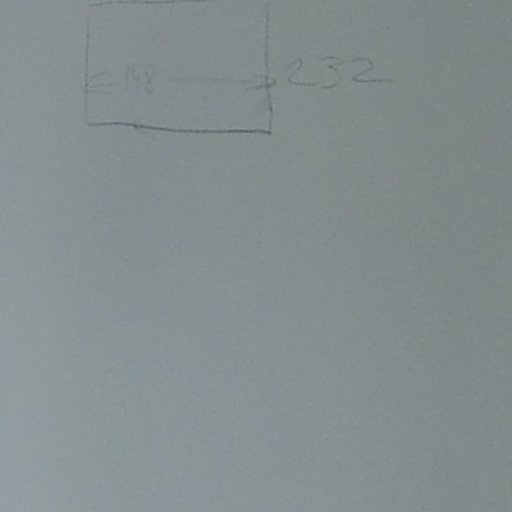 148 232